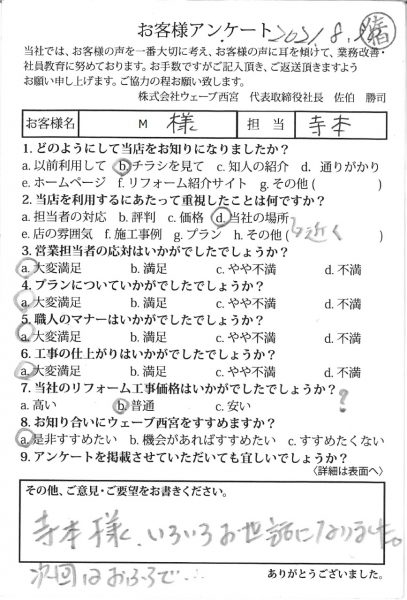 お客様アンケート 2021.8.
当社では、お客様の声を一番大切に考え、お客様の声に耳を傾けて、業務改善・
社員教育に努めております。お手数ですがご記入頂き、ご返送頂きますよう
お願い申し上げます。ご協力の程お願い致します。
株式会社ウェーブ西宮 代表取締役社長 佐伯 勝司
お客様名 M 様 担当 寺本
1. どのようにして当店をお知りになりましたか?
a. 以前利用して b. チラシを見て c. 知人の紹介 d. 通りがかり
e. ホームページ f. リフォーム紹介サイト g. その他( )
2. 当店を利用するにあたって重視したことは何ですか?
a. 担当者の対応 b. 評判 c. 価格 d. 当社の場所
e. 店の雰囲気 f. 施工事例 g. プラン h. その他( 近く )
3. 営業担当者の応対はいかがでしたでしょうか?
a. 大変満足 b. 満足 c. やや不満 d. 不満
4. プランについていかがでしたでしょうか?
a. 大変満足 b. 満足 c. やや不満 d. 不満
5. 職人のマナーはいかがでしたでしょうか?
a. 大変満足 b. 満足 c. やや不満 d. 不満
6. 工事の仕上がりはいかがでしたでしょうか?
a. 大変満足 b. 満足 c. やや不満 d. 不満
7. 当社のリフォーム工事価格はいかがでしたでしょうか? ?
a. 高い b. 普通 c. 安い
8. お知り合いにウェーブ西宮をすすめますか?
a. 是非すすめたい b. 機会があればすすめたい c. すすめたくない
9. アンケートを掲載させていただいても宜しいでしょうか?
〈詳細は表面へ〉
その他、ご意見・ご要望をお書きください。
寺本様、いろいろお世話になりました。
次回はおふろで...
ありがとうございました。